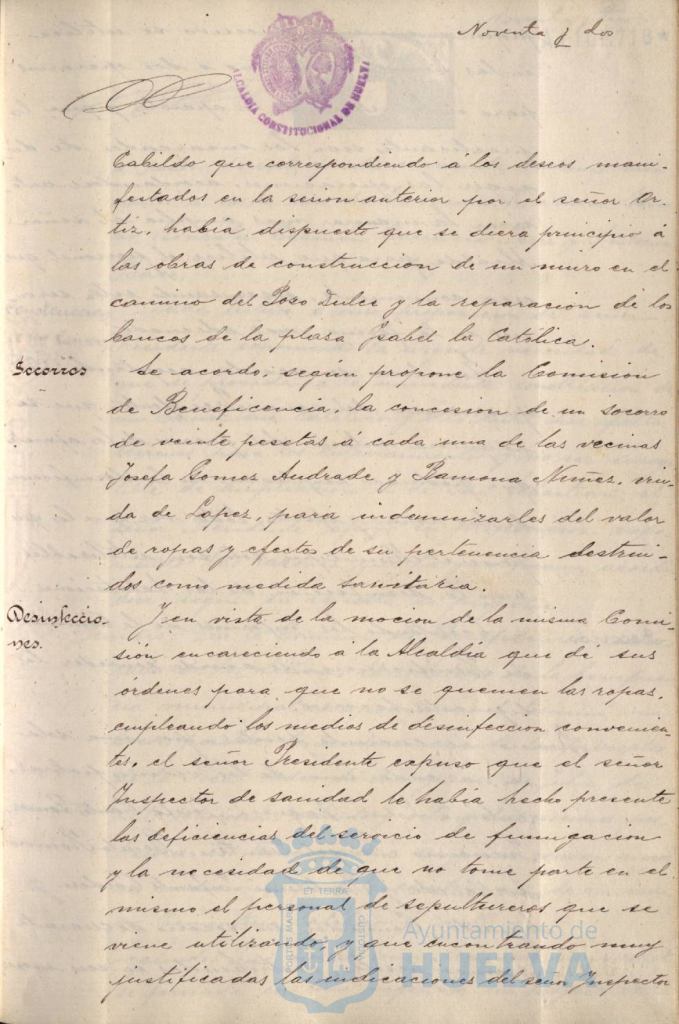 Noventa y dos
ALCALDIA CONSTITUCIONAL DE HUELVA
Cabildo que correspondiendo á los deseos mani-
festados en la sesion anterior por el señor Or-
tiz, había dispuesto que se diera principio á
las obras de construccion de un muro en el
camino del Pozo Dulce y la reparación de los
bancos de la plaza Isabel la Católica.
Socorros
Se acordo, según propone la Comisión
de Beneficencia, la concesion de un socorro
de veinte pesetas á cada una de las vecinas
Josefa Gomez Andrade y Ramona Nuñez, viu-
da de Lopez, para indemnizarles del valor
de ropas y efectos de su pertenencia destrui-
dos como medida sanitaria.
Desinfeccio-
nes.
Y en vista de la mocion de la misma Comi-
sión encareciendo á la Alcaldía que dé sus
órdenes para que no se quemen las ropas,
empleando los medios de desinfeccion convenien-
tes, el señor Presidente expuso que el señor
Inspector de sanidad le había hecho presente
las deficiencias del servicio de fumigacion
y la necesidad de que no tome parte en el
mismo el personal de sepultureros que se
viene utilizando, y que encontrando muy
justificadas las indicaciones del señor Inspector
Ayuntamiento de
HUELVA